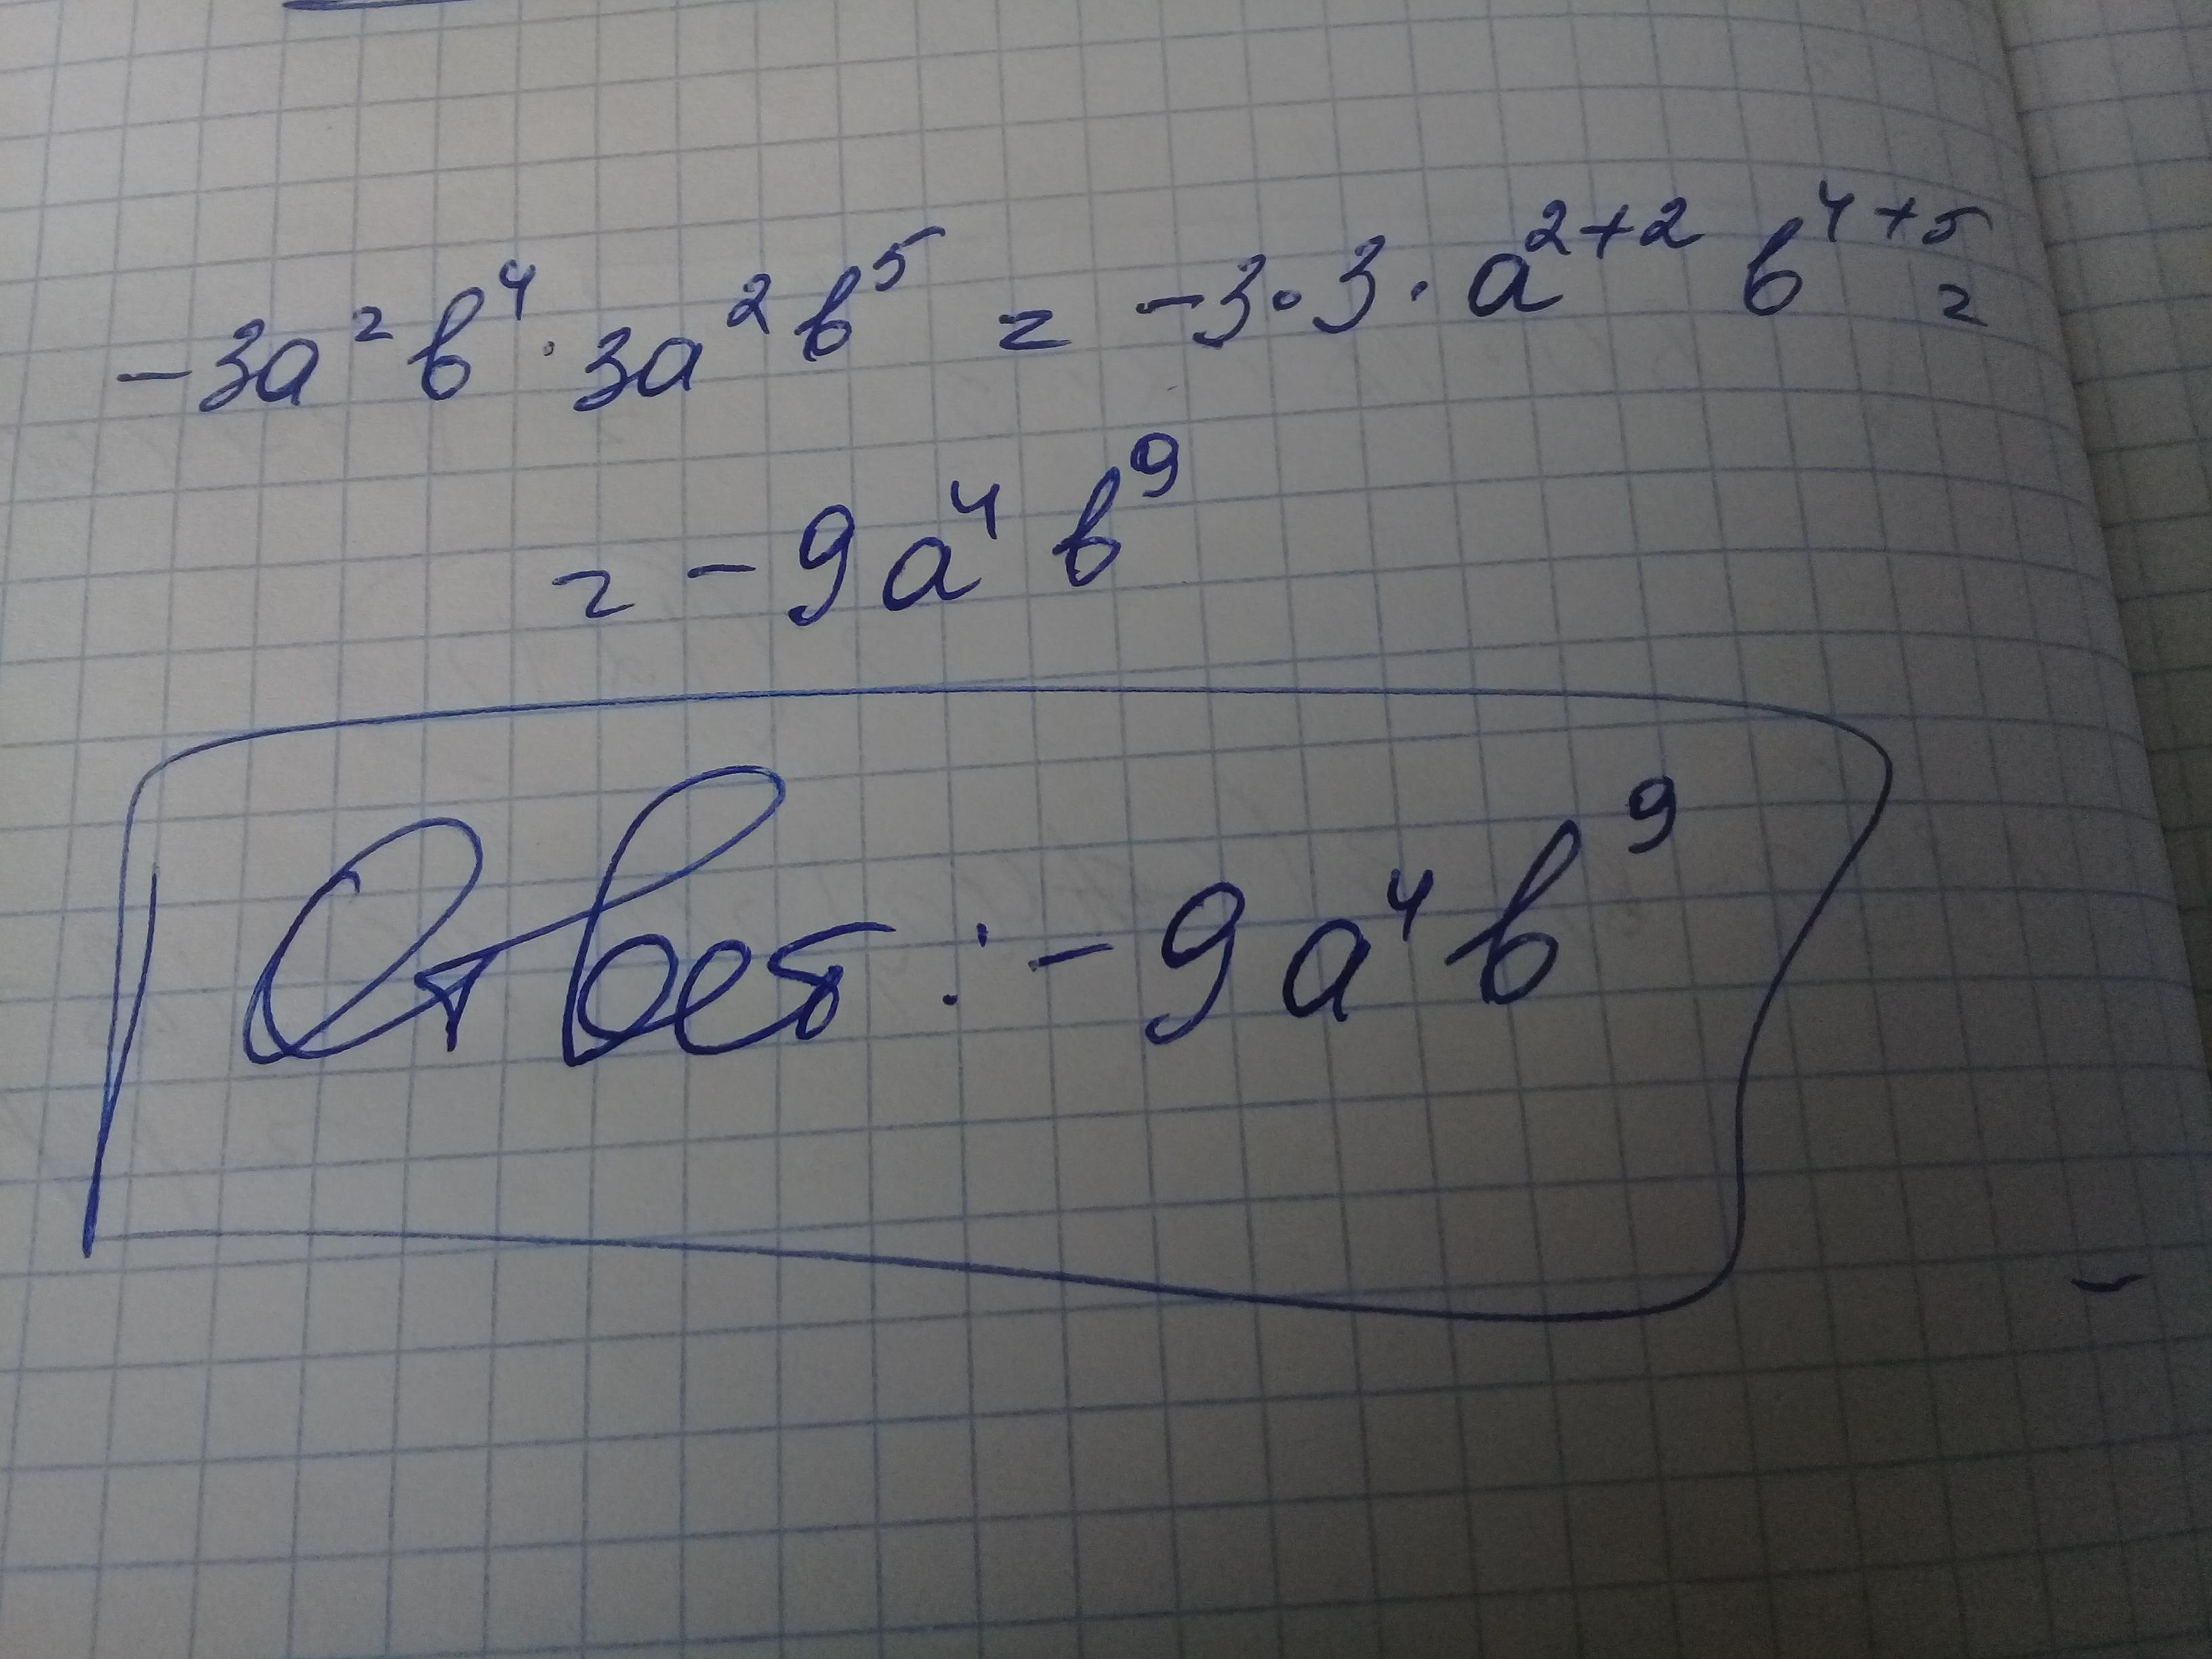 -3a²b⁴·3a²b⁵ = -3·3·a²⁺²b⁴⁺⁵ =
= -9a⁴b⁹
Ответ: -9a⁴b⁹